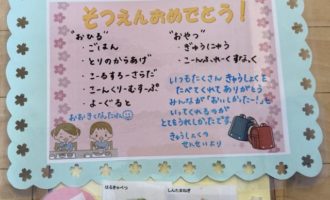 そつえんおめでとう!
"おひる"
・ごはん
・とりのからあげ
・こーるすろーさらだ
・こーんくりーむすーぷ
・よーぐると
おおきくなったね
"おやつ"
・ぎゅうにゅう
・こーんふれーくすなっく
いつもたくさん きゅうしょくを
たべてくれて ありがとう
みんなが "おいしかったー!"を
いってくれるのが
とてもうれしかったです。
きゅうしょくの
せんせいより
はるきゃべつ
しんたまねぎ